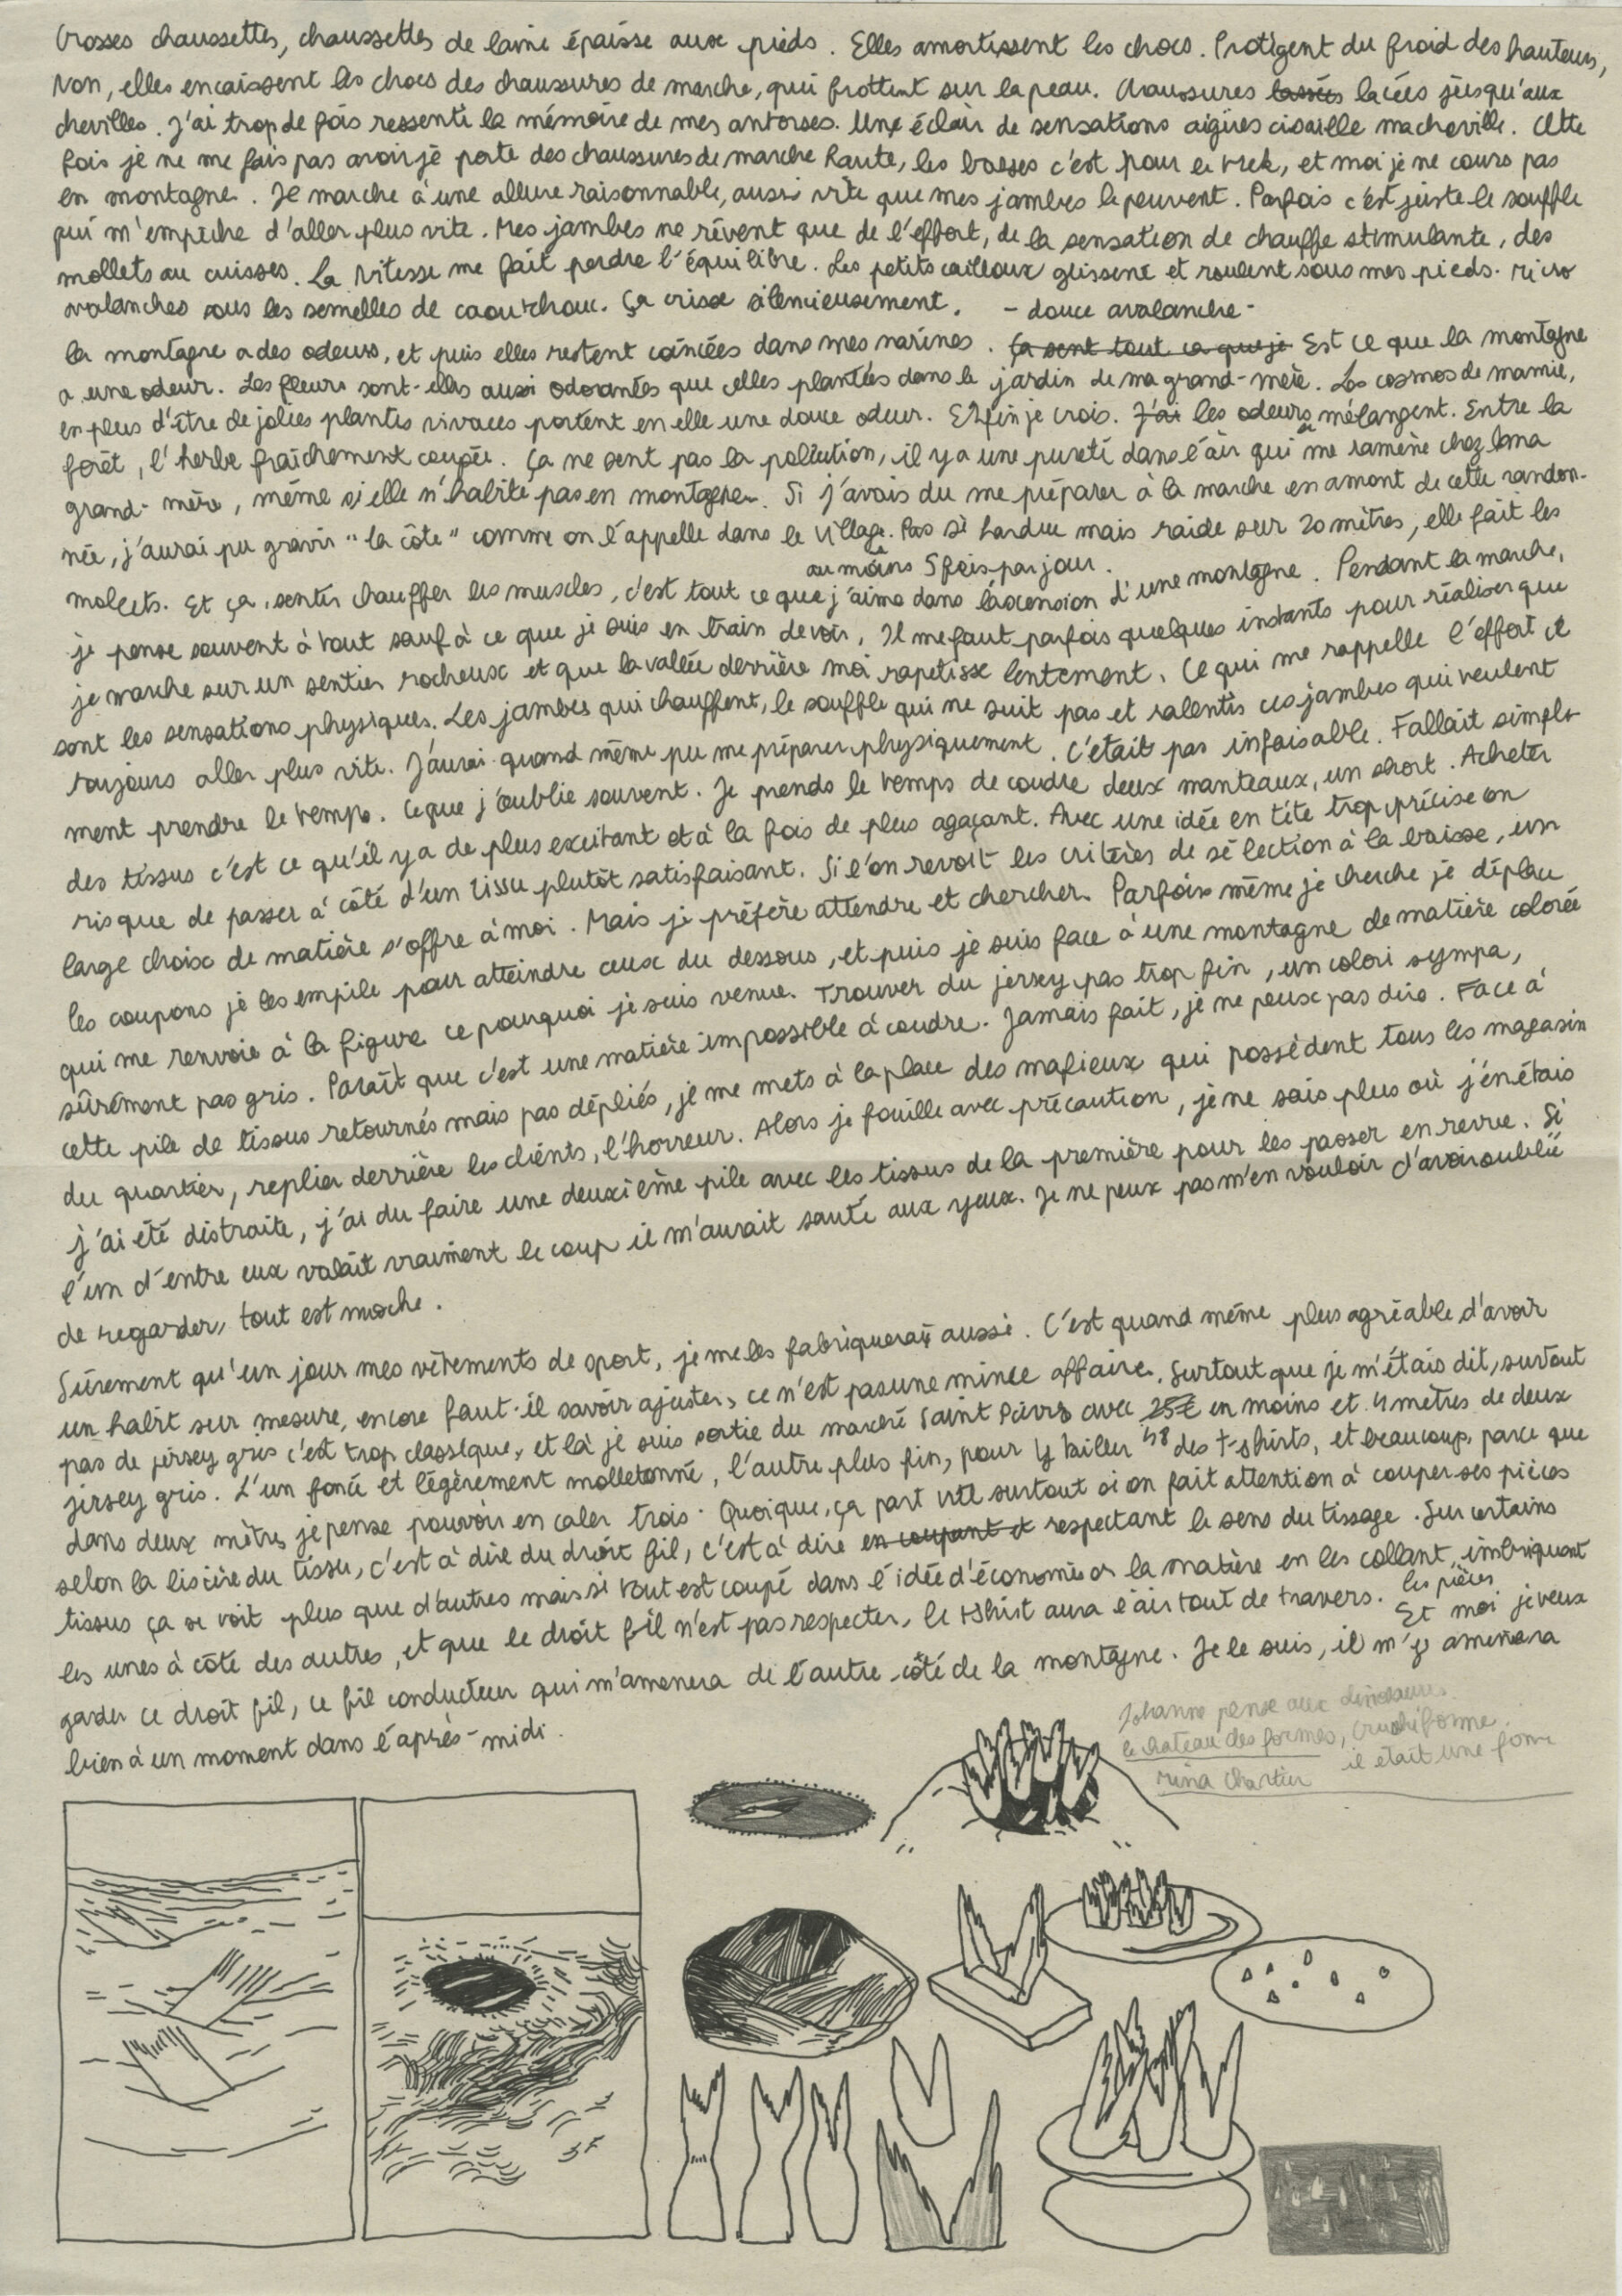 Grosses chaussettes, chaussettes de laine épaisse aux pieds. Elles amortissent les chocs. Protègent du froid des hauteurs,
Non, elles encaissent les chocs des chaussures de marche, qui frottent sur la peau. Chaussures lacées jusqu'aux
chevilles. J'ai trop de fois ressenti la mémoire de mes antorses. Une éclair de sensations aigües cisaille ma cheville. Cette
fois je ne me fais pas avoir je porte des chaussures de marche haute, les basses c'est pour le trek, et moi je ne cours pas
en montagne. Je marche à une allure raisonnable, aussi vite que mes jambes le peuvent. Parfois c'est juste le souffle
qui m'empêche d'aller plus vite. Mes jambes ne rêvent que de l'effort, de la sensation de chauffe stimulante, des
mollets au cuisses. La vitesse me fait perdre l'équilibre. Les petits cailloux glissent et roulent sous mes pieds. Micro
avalanches sous les semelles de caoutchouc. Ça crisse silencieusement. - douce avalanche -
la montagne a des odeurs, et puis elles restent coincées dans mes narines. Ça sent tout ce que je Est ce que la montagne
a une odeur. Les fleurs sont-elles aussi odorantes que celles plantées dans le jardin de ma grand-mère. Les cosmos de mamie,
en plus d'être de jolies plantes vivaces portent en elle une douce odeur. Enfin je crois. J'ai les odeurs se mélangent. Entre la
forêt, l'herbe fraîchement coupée. Ça ne sent pas la pollution, il y a une pureté dans l'air qui me ramène chez ma
grand-mère, même si elle n'habite pas en montagne. Si j'avais du me préparer à la marche en amont de cette randon-
née, j'aurai pu gravir "la côte" comme on l'appelle dans le village. Pas si hardue mais raide sur 20 mètres, elle fait les
au moins 5 fois par jour.
mollets. Et ça, sentir chauffer les muscles, c'est tout ce que j'aime dans l'ascension d'une montagne. Pendant la marche,
je pense souvent à tout sauf à ce que je suis en train de voir. Il me faut parfois quelques instants pour réaliser que
je marche sur un sentier rocheux et que la vallée derrière moi rapetisse lentement. Ce qui me rappelle l'effort ce
sont les sensations physiques. Les jambes qui chauffent, le souffle qui ne suit pas et ralentis ces jambes qui veulent
toujours aller plus vite. J'aurai quand même pu me préparer physiquement. C'était pas infaisable. Fallait simple-
ment prendre le temps. Ce que j'oublie souvent. Je prends le temps de coudre deux manteaux, un short. Acheter
des tissus c'est ce qu'il y a de plus excitant et à la fois de plus agaçant. Avec une idée en tête trop précise on
risque de passer à côté d'un tissu plutôt satisfaisant. Si l'on revoit les critères de sélection à la baisse, un
large choix de matière s'offre à moi. Mais je préfère attendre et chercher. Parfois même je cherche je déplace
les coupons je les empile pour atteindre ceux du dessous, et puis je suis face à une montagne de matière colorée
qui me renvoie à la figure ce pourquoi je suis venue. Trouver du jersey pas trop fin, un colori sympa,
sûrement pas gris. Paraît que c'est une matière impossible à coudre. Jamais fait, je ne peux pas dire. Face à
cette pile de tissus retournés mais pas dépliés, je me mets à la place des mafieux qui possèdent tous les magasin
du quartier, replier derrière les clients, l'horreur. Alors je fouille avec précaution, je ne sais plus où j'en étais
j'ai été distraite, j'ai du faire une deuxième pile avec les tissus de la première pour les passer en revue. Si
l'un d'entre eux valait vraiment le coup il m'aurait sauté aux yeux. Je ne peux pas m'en vouloir d'avoir oublié
de regarder, tout est moche.
Sûrement qu'un jour mes vêtements de sport, je me les fabriquerai aussi. C'est quand même plus agréable d'avoir
un habit sur mesure, encore faut-il savoir ajuster, ce n'est pas une mince affaire. Surtout que je m'étais dit, surtout
pas de jersey gris c'est trop classique, et là je suis sortie du marché Saint Pierre avec 25€ en moins et 4 mètres de deux
jersey gris. L'un foncé et légèrement molletonné, l'autre plus fin, pour y tailler des t-shirts, et beaucoup, parce que
dans deux mètres je pense pouvoir en caler trois. Quoique, ça part vite surtout si on fait attention à couper ses pièces
selon la lisière du tissu, c'est à dire du droit fil, c'est à dire en coupant et respectant le sens du tissage. Sur certains
tissus ça se voit plus que d'autres mais si tout est coupé dans l'idée d'économiser la matière en les collant, imbriquant
les pièces
les unes à côté des autres, et que le droit fil n'est pas respecter, le t-shirt aura l'air tout de travers. Et moi je veux
garder ce droit fil, ce fil conducteur qui m'amenera de l'autre côté de la montagne. Je le suis, il m'y amenera
bien à un moment dans l'après-midi.
Johanna pense aux dinosaures
le château des formes, cruciforme,
il était une forme
nina chartier